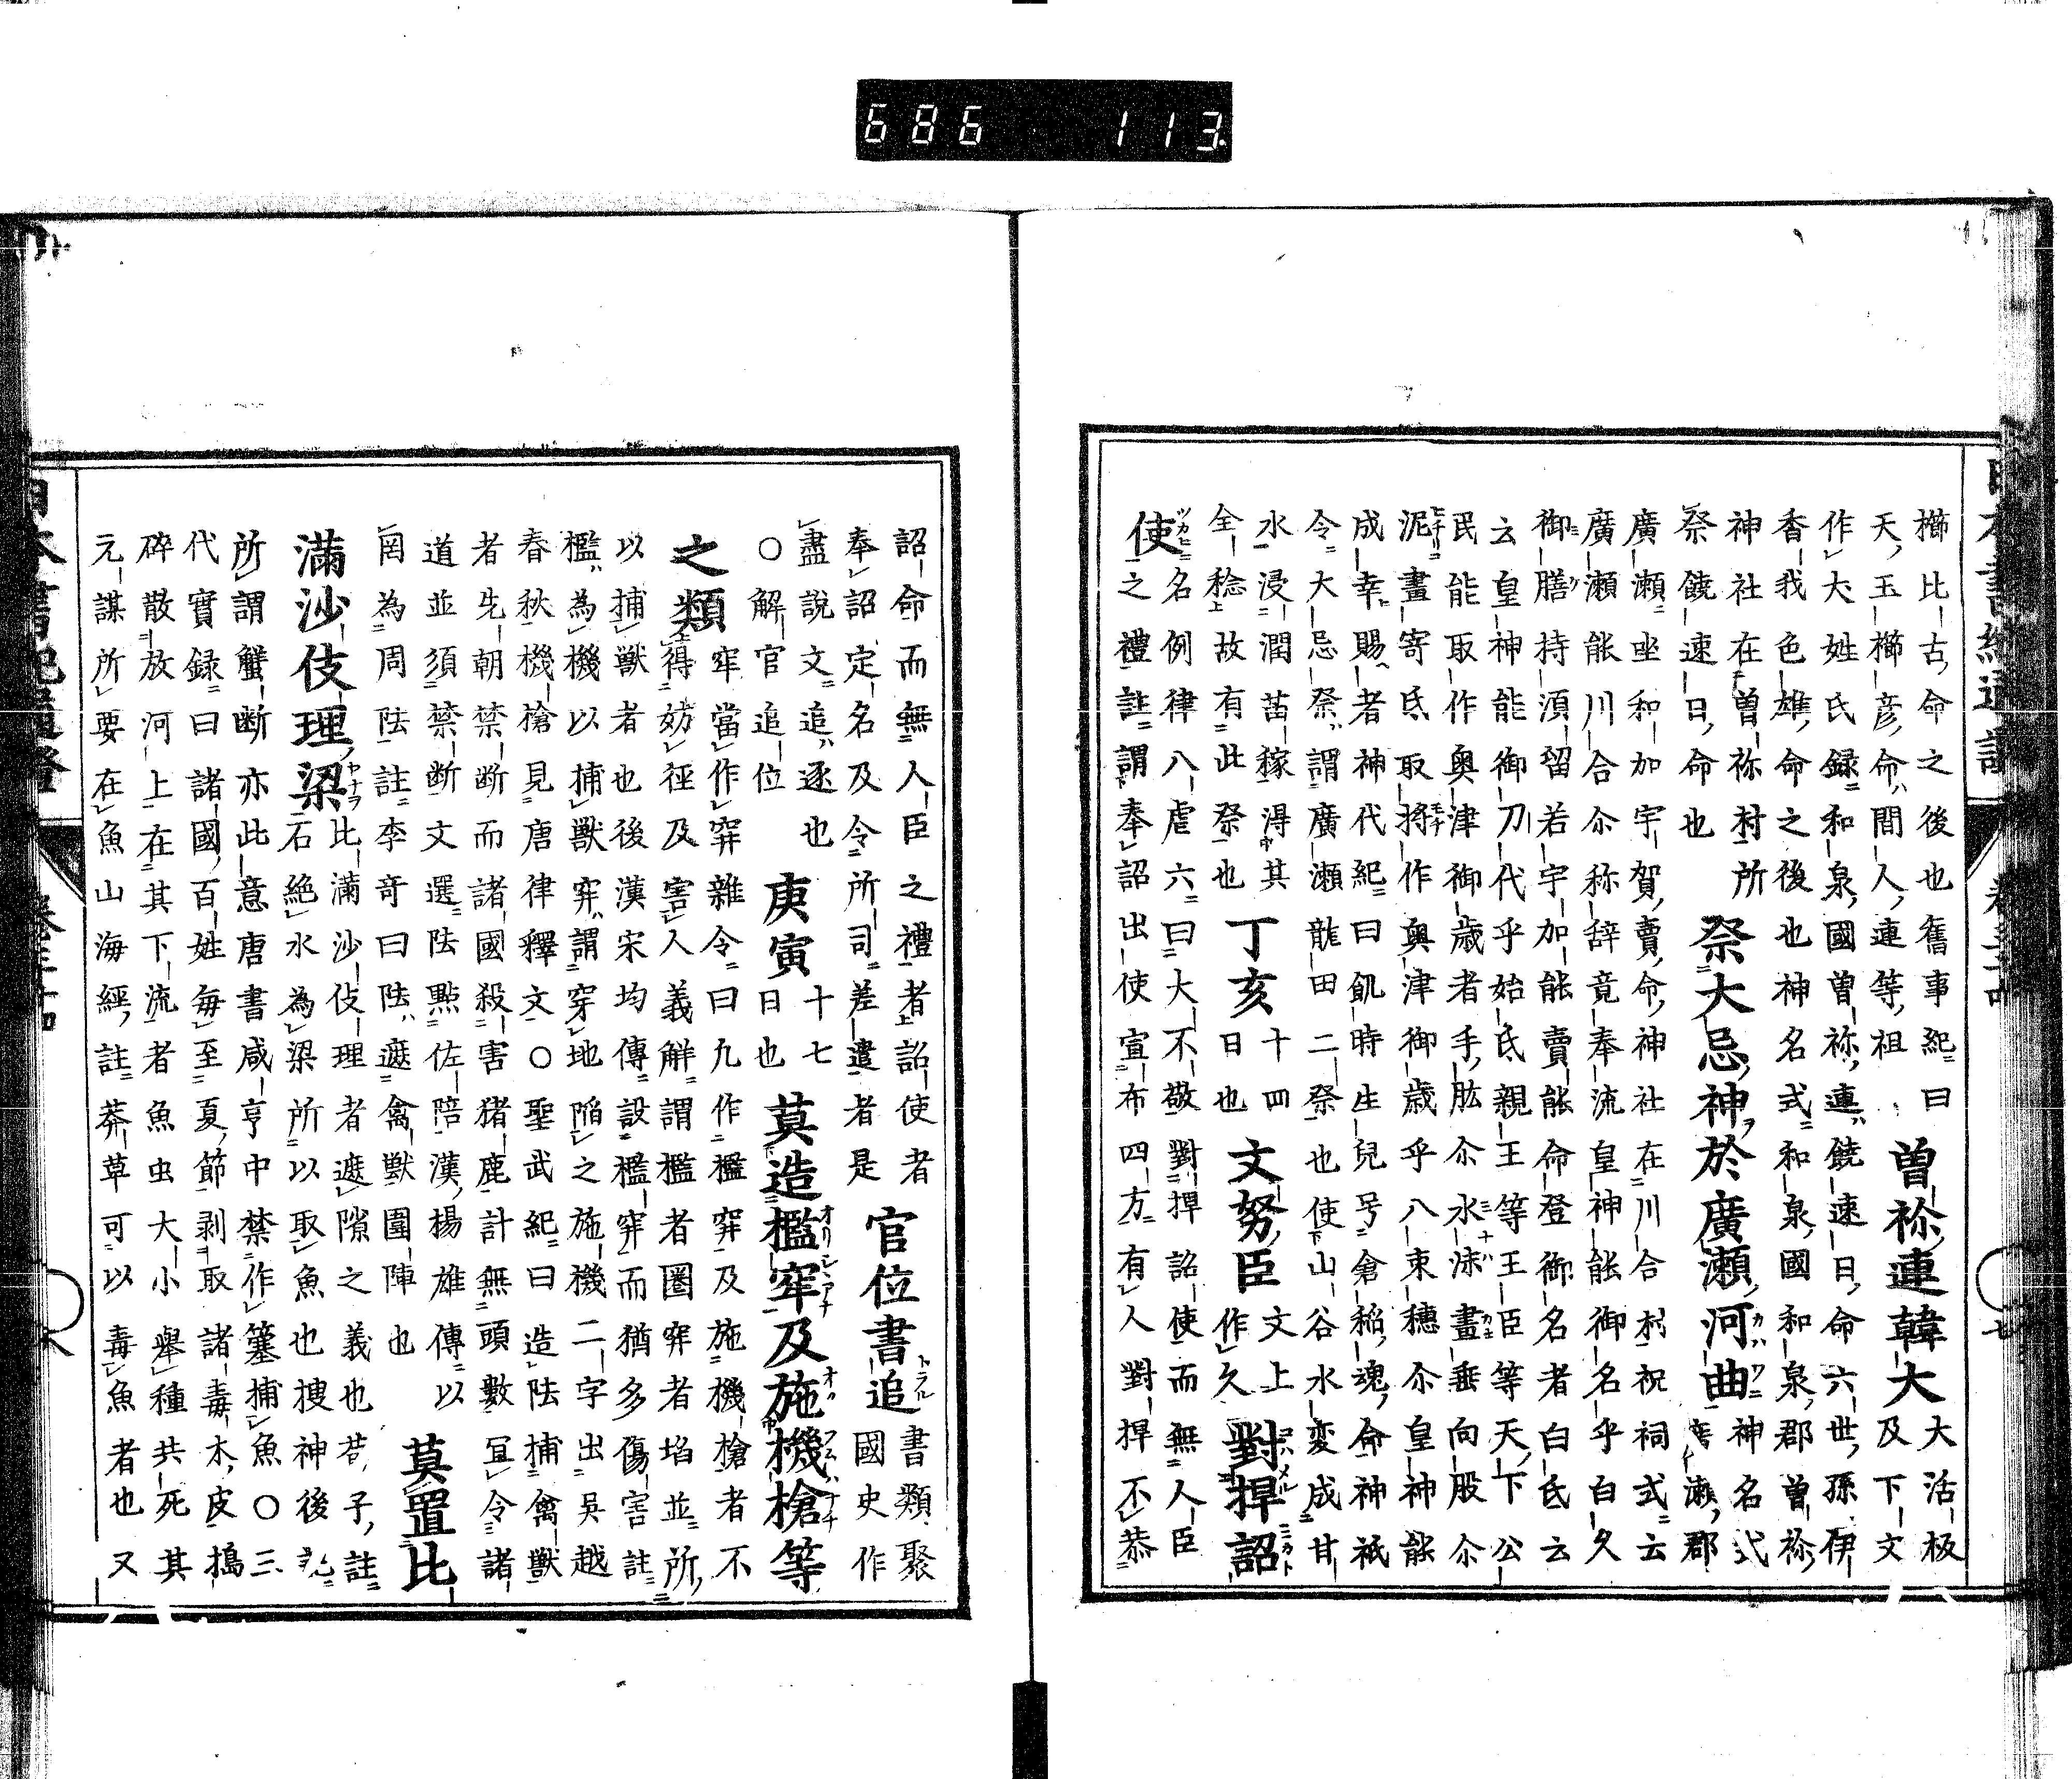 686 113
櫛比古命之後也舊事紀曰
天玉櫛彦命間人連等祖
曽祢連韓大
大活板
及下文
作大姓氏録和泉國曽祢連饒速日命六世孫伊
香我色雄命之後也神名式和泉國和泉郡曽祢
神社在曽祢村所
祭饒速日命也
祭大忌神於廣瀬河曲
神名式
廣瀬郡
廣瀬坐和加宇賀賣命神社在川合村祝詞式云
廣瀬能川合尓称辞竟奉流皇神能御名乎白久
御膳持湏留若宇加能賣能命登御名者白氐云
云皇神能御刀代乎始氐親王等王臣等天下公
民能取作奥津御歳者手肱尓水沫畫垂向股尓
泥畫寄氐取捋作奥津御歳乎八束穗尓皇神能
成幸賜者神代紀曰飢時生兒号倉稲魂命神祇
令大忌祭謂廣瀬龍田二祭也使山谷水変成甘
水浸潤苗稼淂其
全稔故有此祭也
丁亥
十四
日也
文努臣
文上
作久
對捍詔
使
名例律八虐六曰大不敬對捍詔使而無人臣
之禮註謂奉詔出使宣布四方有人對捍不恭
詔命而無人臣之禮者詔使者
奉詔定名及令所司差遣者是
官位書追
書類聚
國史作
盡說文追逐也
○解官追位
庚寅
十七
日也
莫造檻穽及施機槍等
之類
穽當作穽雜令曰九作檻穽及施機槍者不
得妨径及害人義解謂檻者圏穽者埳並所
以捕獣者也後漢宋均傳設檻穽而猶多傷害註
檻為機以捕獣穽謂穿地陷之施機二字出吳越
春秋機槍見唐律釋文○聖武紀曰造阹捕禽獣
者先朝禁断而諸國殺害猪鹿計無頭數宜令諸
道並須禁断文選阹點佐陪漢楊雄傳以
罔為周阹註李奇曰阹遮禽獣圍陣也
莫置比
滿沙伎理梁
比滿沙伎理者遮隙之義也荀子註
石絶水為梁所以取魚也捜神後記
所謂蟹断亦此意唐書咸亨中禁作簺捕魚○三
代實録曰諸國百姓毎至夏節剥取諸毒木皮搗
碎散放河上在其下流者魚虫大小擧種共死其
元謀所要在魚山海經註莽草可以毒魚者也又